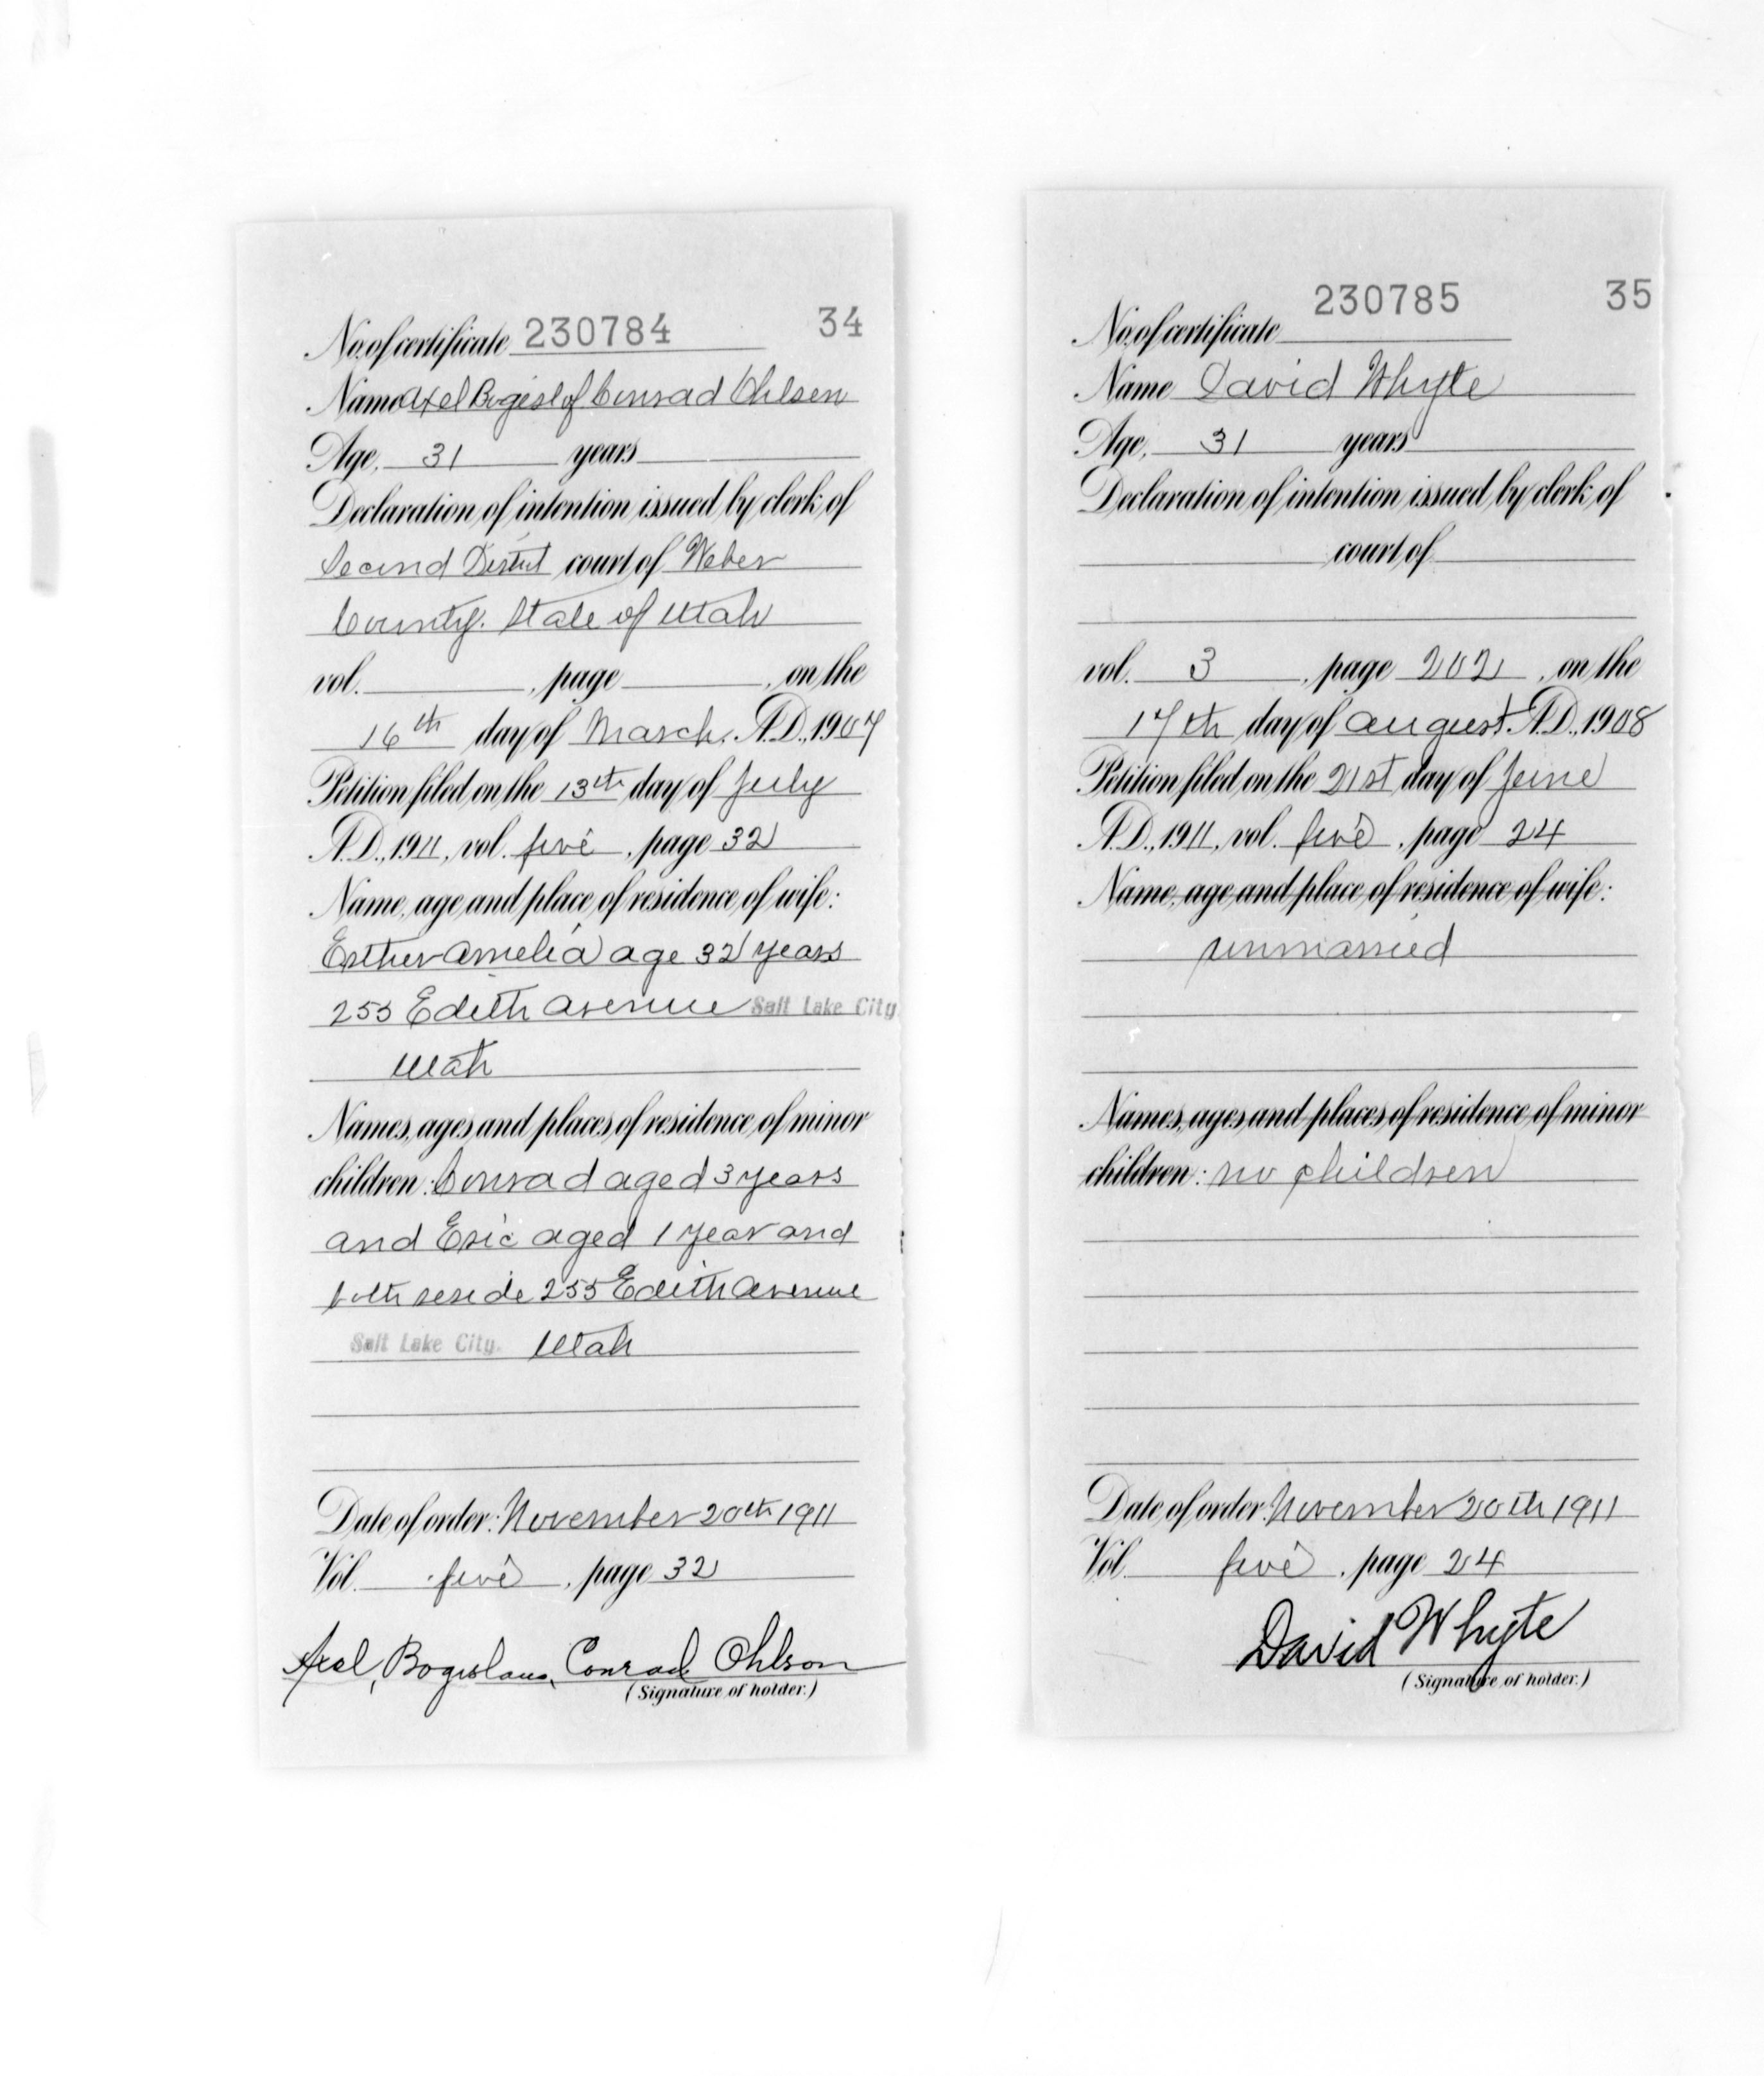 No. of certificate 230784 34
Name Axel Bogislof Conrad Ohlsen
Age, 31 years
Declaration of intention issued by clerk of
Second District court of Weber
County. State of Utah
vol. , page , on the
16th day of March, A.D., 1907
Petition filed on the 13th day of July
A.D., 1911, vol. five , page 32
Name, age and place of residence of wife:
Esther Amelia age 32 years
255 Edith Avenue Salt Lake City
Utah
Names, ages and places of residence of minor
children: Conrad aged 3 years
and Eric aged 1 year and
both reside 255 Edith Avenue
Salt Lake City. Utah
Date of order: November 20th 1911
Vol. five , page 32
Axel, Bogislaus, Conrad Ohlson
(Signature of holder.)
230785 35
No. of certificate
Name David Whyte
Age, 31 years
Declaration of intention issued by clerk of
court of
vol. 3 , page 202 , on the
17th day of August A.D., 1908
Petition filed on the 21st day of June
A.D., 1911, vol. five , page 24
Name, age and place of residence of wife:
unmarried
Names, ages and places of residence of minor
children: no children
Date of order: November 20th 1911
Vol. five , page 24
David Whyte
(Signature of holder.)